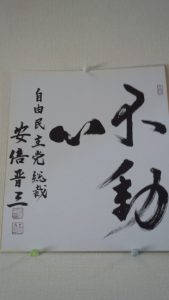 不動心
自由民主党総裁
安倍晋三